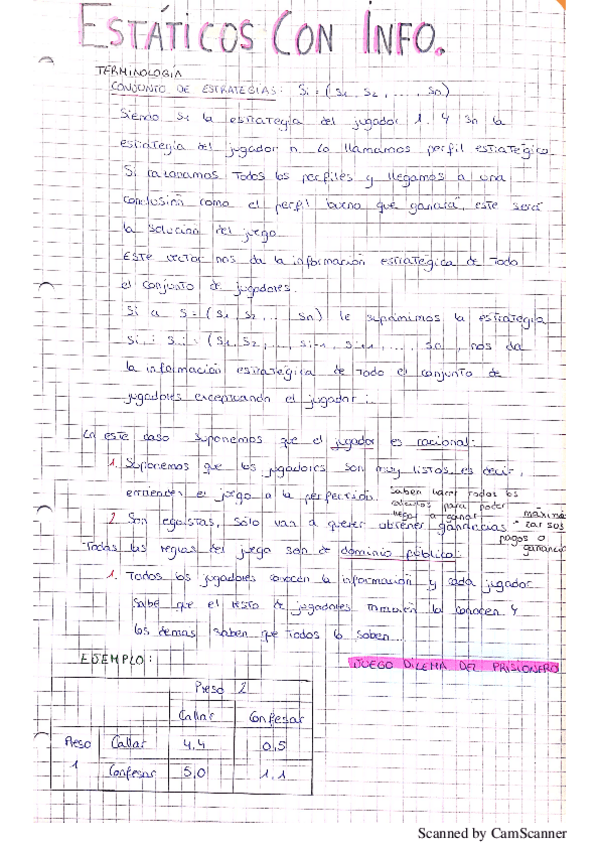 ESTÁTICOS CON INFO.
TERMINOLOGÍA
CONJUNTO DE ESTRATEGIAS: Si = (S1, S2, ...., Sn)
Siendo S1 la estrategia del jugador 1. Y Sn la
estrategia del jugador n. Lo llamamos perfil estratégico
Si razonamos todos los perfiles y llegamos a una
conclusión como el perfil bueno que ganará", este será
la solución del juego.
Este vector nos da la información estratégica de todo
el conjunto de jugadores.
Si a S = (S1, S2, ... Sn) le suprimimos la estrategia
Si : S-i = (S1, S2, ..., Si-1, Si+1, ..., Sn), nos da
la información estratégica de todo el conjunto de
jugadores exceptuando el jugador i.
En este caso suponemos que el jugador es racional:
1. Suponemos que los jugadores son muy listos, es decir,
entienden el juego a la perfección. saben hacer todos los
cálculos para poder
llegar a ganar
2. Son egoístas, sólo van a querer obtener ganancias
maximi-
zar sus
pagos o
ganancia
Todas las reglas del juego son de dominio público:
1. Todos los jugadores conocen la información y cada jugador
sabe que el resto de jugadores también la conocen y
los demás saben que todos lo saben...
EJEMPLO:
JUEGO DILEMA DEL PRISIONERO
Preso 2
Callar Confesar
Preso 1 Callar 4,4 0,5
Confesar 5,0 1,1
Scanned by CamScanner